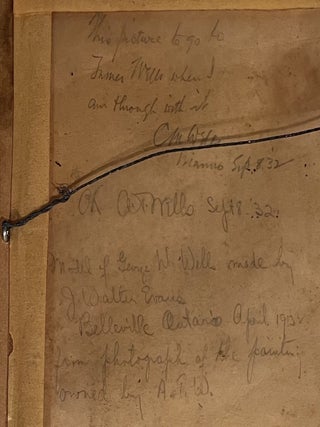 This picture to go to
James Wells when I
am through with it
C M Wells
Sept. 8. '32
OK A T Wells Sept 8 '32.
of George W. Wells made by
J. Walter Evans
Belleville Ontario April 193
from photograph of the painting
owned by A.T.W.